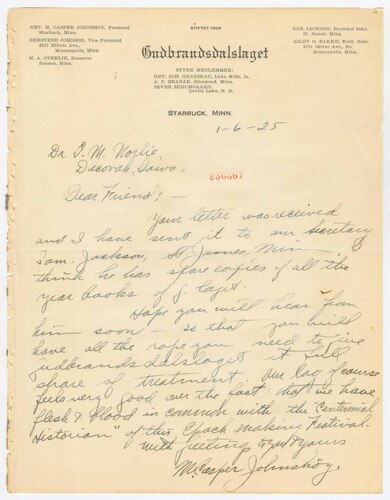 REV. M. CASPER JOHNSHOY, Formand
Starbuck, Minn.
BERSVEND JOHNSON, Vice Formand
Minneapolis, Minn.
M. A. OVERLIE, Kasserer
Benson, Minn.
STIFTET 1909
Gudbrandsdalslaget
STYRE MEDLEMMER:
REV. JOH. GRANSKAU, Lake Mills, Ia.
A. P. BRANAE, Glenwood, Minn.
SEVER SERUMGAARD,
Devils Lake, N. D.
SAM JACKSON, Protokol Sekr.
St. James, Minn.
Minneapolis, Minn.
STARBUCK, MINN.
1-6-25
Dr. O. M. Norlie,
Decorah, Iowa,
Dear Friend:—
Your letter was received
and I have sent it to our secretary
Sam. Jackson, St James, Minn. I
think he has spare copies of all the
year books of G. laget.
Hope you will hear from
him soon — so that you will
have all the rope you need to give
Gudbrandsdalslaget it full
share of treatment. Our lag of course
feels very good over the fact that we have
flesh & blood in common with the "Centennial
Historian" of this Epoch making Festival.
With greeting
yours
M. Casper Johnshoy.